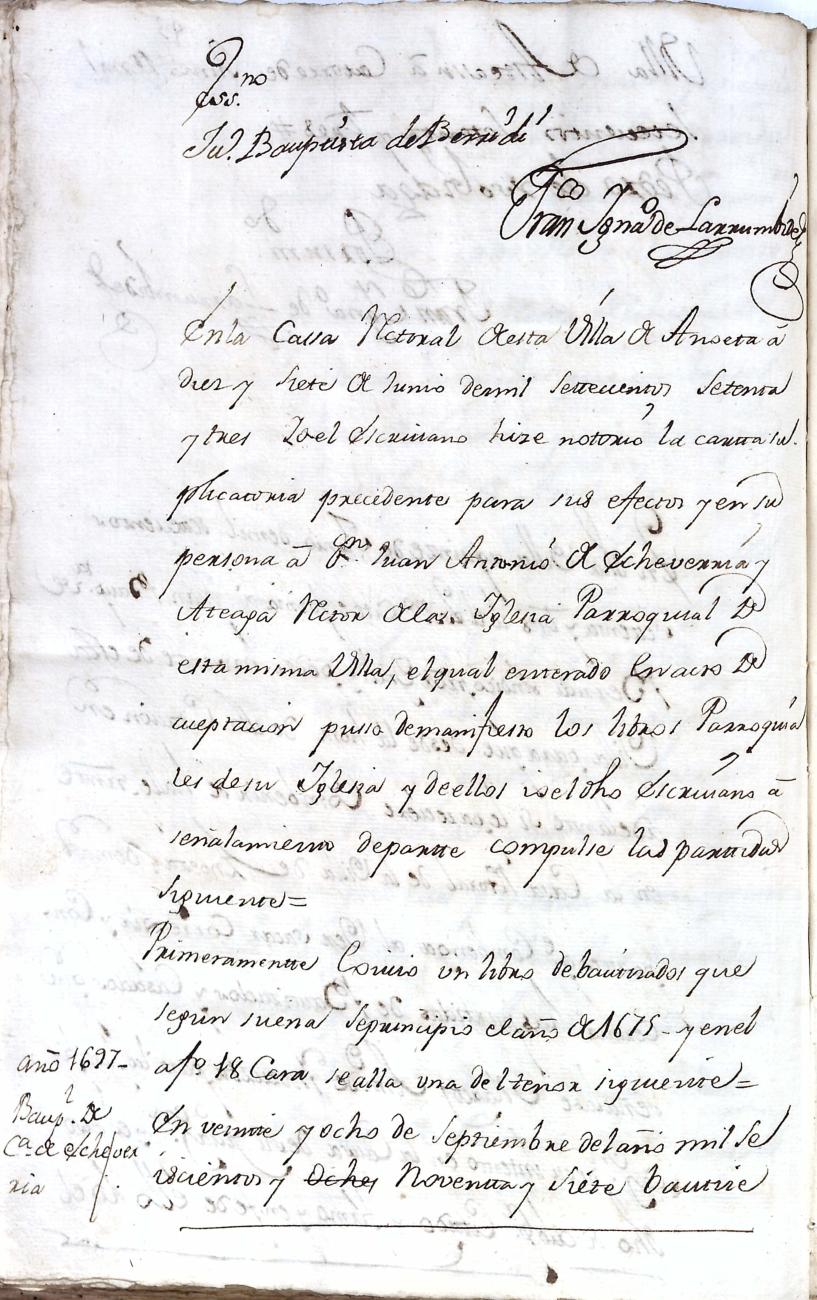 Ess.no
Ju.n Baup.sta de Berridi
Fran.co Ygna.o de Larrumbide
En la Cassa Rectoral de esta Villa de Anoeta â
diez y siete de Junio de mil settecientos setenta
y tres Yo el Escrivano hize notorio la cartta su
plicatoria precedente para sus efectos y en su
persona â Dn. Juan Antonio de Echeverria y
Ateaga Rector de la Iglesia Parroquial De
esta misma Villa, el qual enterado en acto De
aceptacion puso de manifiesto los libros Parroquia
les de su Iglesia y de ellos io el dho Escrivano â
señalamiento de partte compulse las partidas
siguiente=
Primeramentte Exivio un libro de bautizados que
segun suena Se principio el año de 1675 - y en el
a fo. 18 Cara se alla una del tenor siguiente=
año 1697-
Baup.l De
C.a de Echever
ria
En veinte y ocho de Septiembre del año mil se
iscientos y Oche, Noventta y Siete bautize